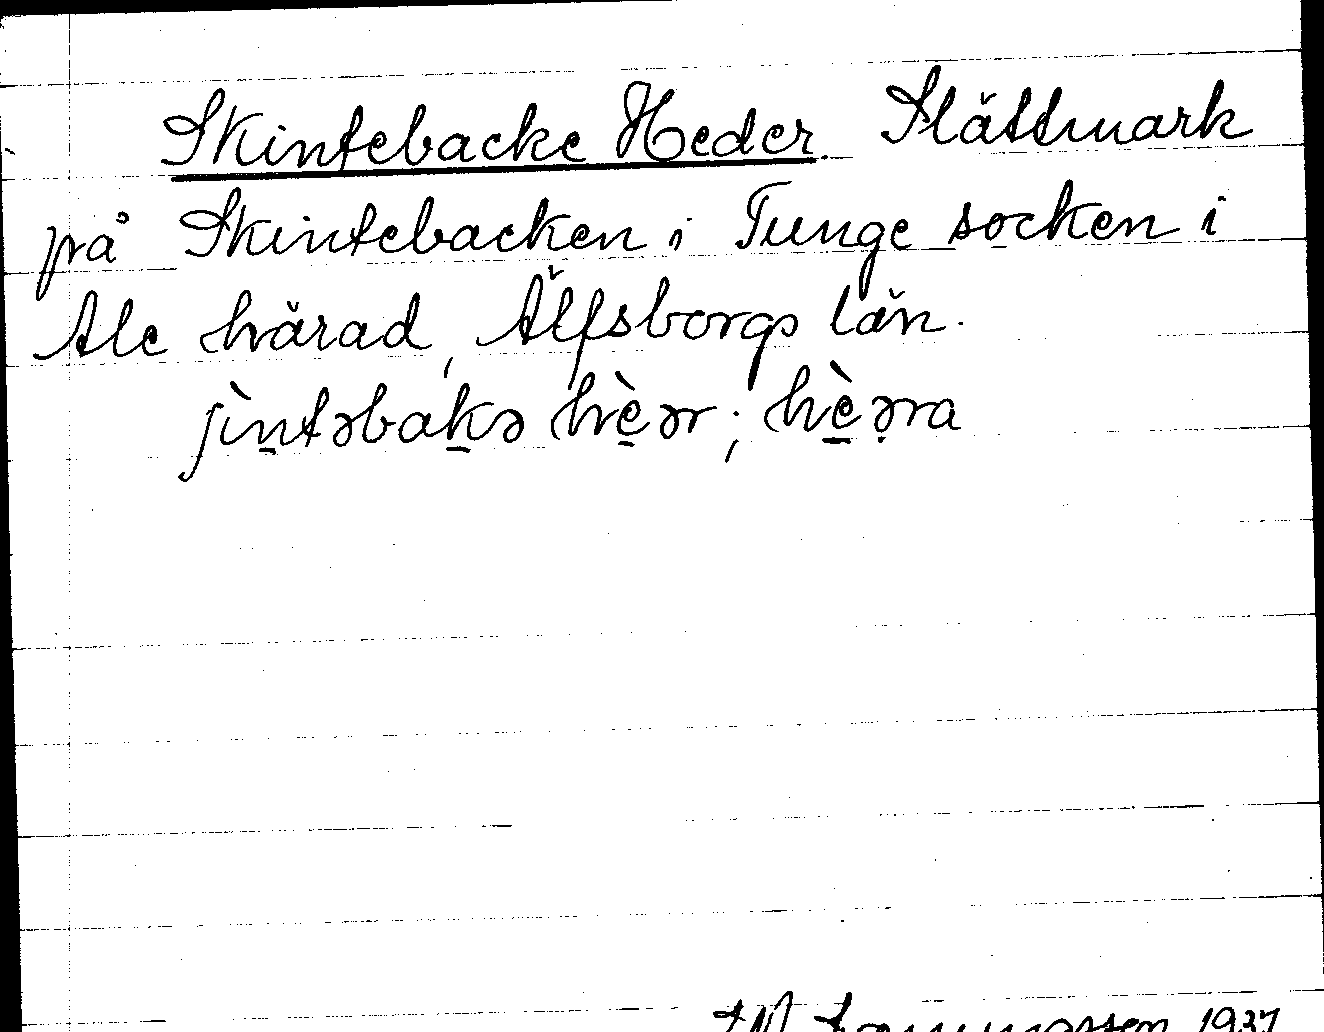 Skintebacke Heder. Slättmark
på Skintebacken i Tunge socken i
Ale härad, Älfsborgs län.
ʃìntəbakə hèər; hèərra
1937